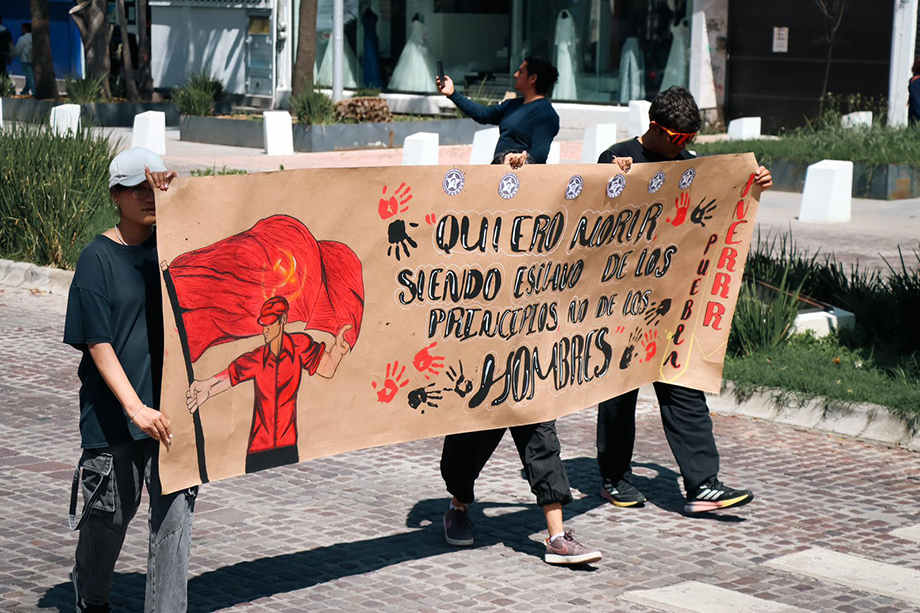 QUIERO MORIR
SIENDO ESCLAVO DE LOS
PRINCIPIOS NO DE LOS
HOMBRES
PUEBLA
JNERRR